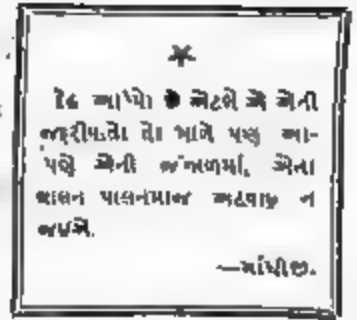 દેહ આપ્યો છે એટલે એ એની
જરૂરીયાતો તો માગે પણ આ-
પણે એની જંજાળમાં, એના
લાલન પાલનમાંજ અટવાઇ ન
જઇએ.
—ગાંધીજી.